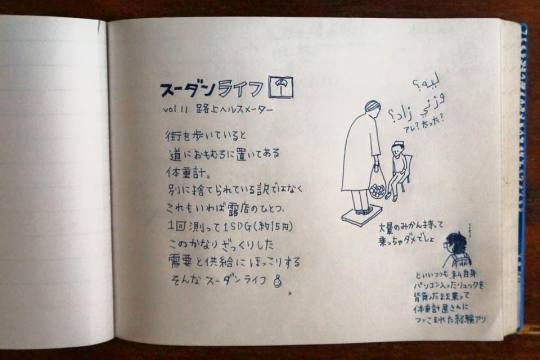 スーダンライフ
vol.11 路上ヘルスメーター
街を歩いていると
道におもむろに置いてある
体重計。
別に捨てられている訳ではなく
これもいわば露店のひとつ。
1回測って1SDG(約15円)
このかなりざっくりした
需要と供給にほっこりする
そんなスーダンライフ
ليه؟
وزني زاد؟
アレ？太った？
大量のみかん持って
乗っちゃダメでしょ
といいつつも、私自身
パソコン入ったリュックを
背負ったまま乗って
体重計屋さんに
つっこまれた経験アリ